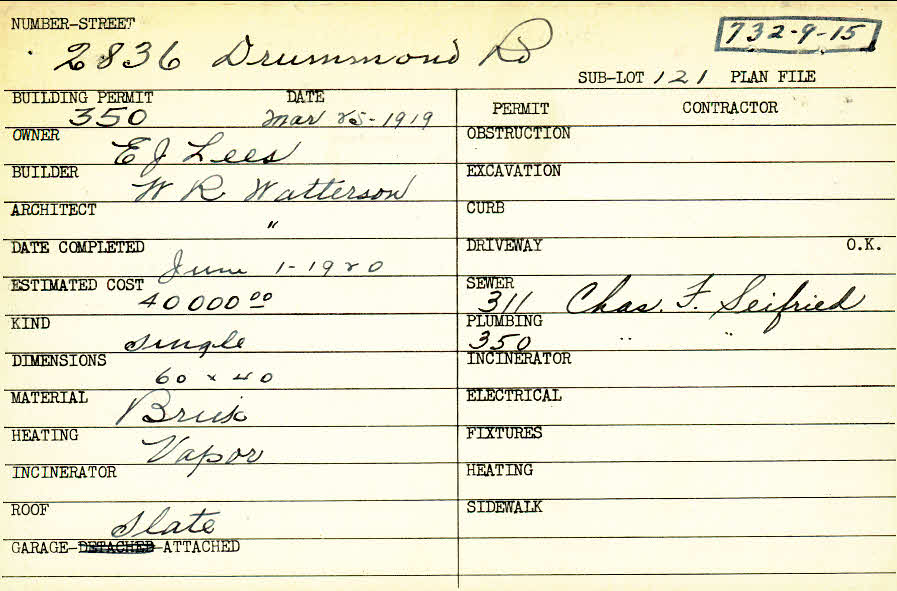 NUMBER-STREET
2836 Drummond Rd
732-9-15
SUB-LOT 121 PLAN FILE
BUILDING PERMIT DATE
350 Mar 25-1919
OWNER
E J Lees
BUILDER
W R Watterson
ARCHITECT
"
DATE COMPLETED
June 1-1920
ESTIMATED COST
40 000 00
KIND
Single
DIMENSIONS
60 x 40
MATERIAL
Brick
HEATING
Vapor
INCINERATOR
ROOF
Slate
GARAGE-DETACHED-ATTACHED
PERMIT CONTRACTOR
OBSTRUCTION
EXCAVATION
CURB
DRIVEWAY O.K.
SEWER
311 Chas. F. Seifried
PLUMBING
350 " "
INCINERATOR
ELECTRICAL
FIXTURES
HEATING
SIDEWALK